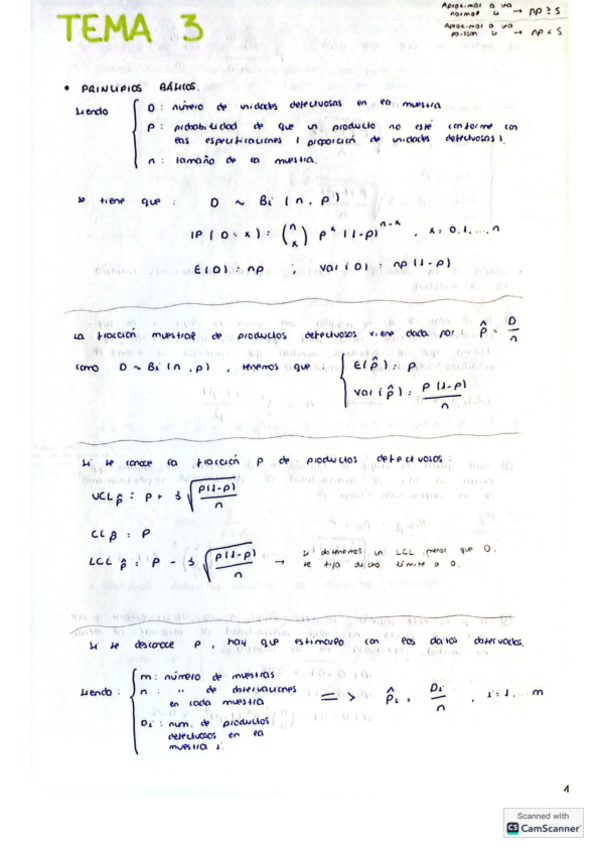 TEMA 3
Aproximar a una normal si → np ≥ 5
Aproximar a una poisson si → np < 5
• PRINCIPIOS BÁSICOS.
siendo { D : número de unidades defectuosas en la muestra
p : probabilidad de que un producto no esté conforme con
las especificaciones ( proporción de unidades defectuosas ).
n : tamaño de la muestra.
se tiene que : D ~ Bi ( n , p )
IP ( D = x ) = (n x) p^x (1-p)^{n-x} , x = 0, 1, ..., n
E(D) = np ; Var(D) = np (1-p)
La fracción muestral de productos defectuosos viene dada por : p̂ = D/n
como D ~ Bi ( n , p ) , tenemos que : { E(p̂) = p
Var(p̂) = p(1-p)/n
Si se conoce la fracción p de productos defectuosos :
UCL p̂ = p + 3 √(p(1-p)/n)
CL p̂ = p
LCL p̂ = p - 3 √(p(1-p)/n) → si obtenemos un LCL menor que 0,
se fija dicho límite a 0.
Si se desconoce p , hay que estimarlo con los datos observados.
siendo : { m : número de muestras
n : " de observaciones
en cada muestra
Di : num. de productos
defectuosos en la
muestra i.
=> p̂i = Di/n , i = 1, ... m
1
Scanned with
CS CamScanner